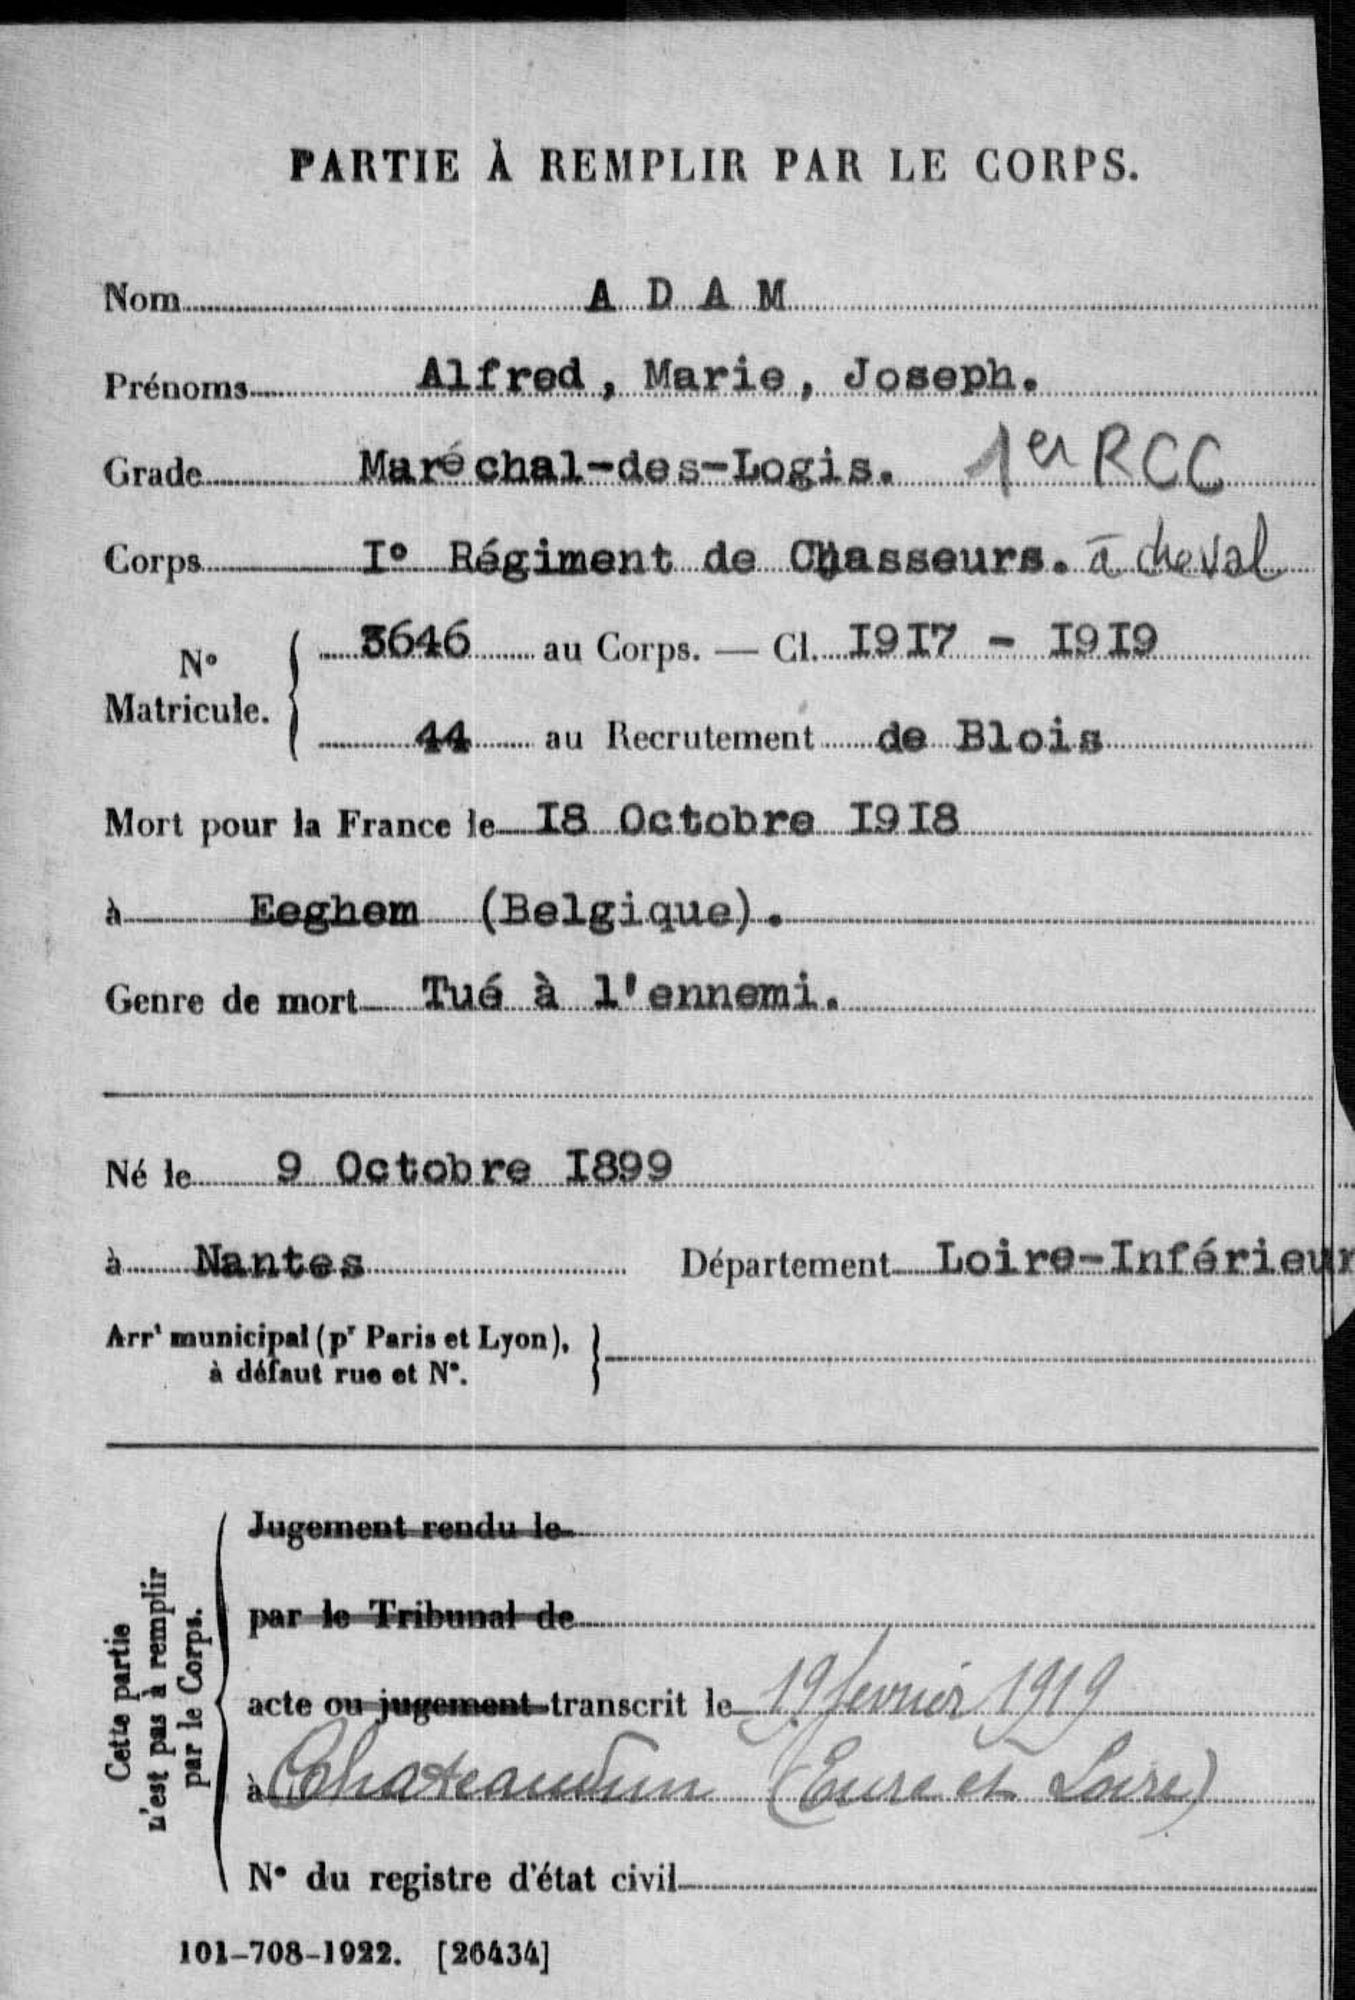 PARTIE À REMPLIR PAR LE CORPS.
Nom A D A M
Prénoms Alfred, Marie, Joseph.
Grade Maréchal-des-Logis. 1er RCC
Corps I° Régiment de Chasseurs. à cheval
N° Matricule.
3646 au Corps. — Cl. I9I7 - I9I9
44 au Recrutement de Blois
Mort pour la France le I8 Octobre I9I8
à Eeghem (Belgique).
Genre de mort Tué à l'ennemi.
Né le 9 Octobre I899
à Nantes Département Loire-Inférieur
Arrt municipal (pr Paris et Lyon),
à défaut rue et N°.
Cette partie
n'est pas à remplir
par le Corps.
Jugement rendu le
par le Tribunal de
acte ou jugement transcrit le 19 fevrier 1919
à Chateaudun (Eure et Loire)
N° du registre d'état civil
101-708-1922. [26434]